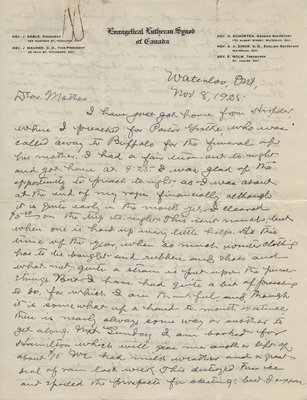 Evangelical Lutheran Synod
of Canada
REV. J. REBLE, PRESIDENT
REV. J. MAURER, D.D., VICE-PRESIDENT
REV. H. SCHORTEN, GERMAN SECRETARY
REV. E. HOLM, TREASURER
Waterloo Ont,
Nov 8, 1925
Dear Mother
I have just got home from Hespeler
where I preached for Pastor who was
called away to Buffalo for the funeral of
his mother. I had a fair turn out to-night
and got home at 9.25. I was glad of the
opportunity to preach to-night as I was about
at the end of my rope financially although
it is quite early in the month yet. I cleared
on the trip to-night. This isn't much but
when one is hard up every little helps. At this
time of the year, when so much winter clothing
has to be bought and rubbers and shoes and
what not, quite a strain is put upon the purse
strings. But I have had quite a bit of preaching
to do, for which I am thankful, and though
it is somewhat of a hand to mouth existence
there is nearly always some way or another to
get along. Next Sunday I am booked for
Hamilton which will give me another lift of
about We had mild weather and a great
deal of rain last week. This destroyed the ice
and spoiled the prospects for skating, but I suppose